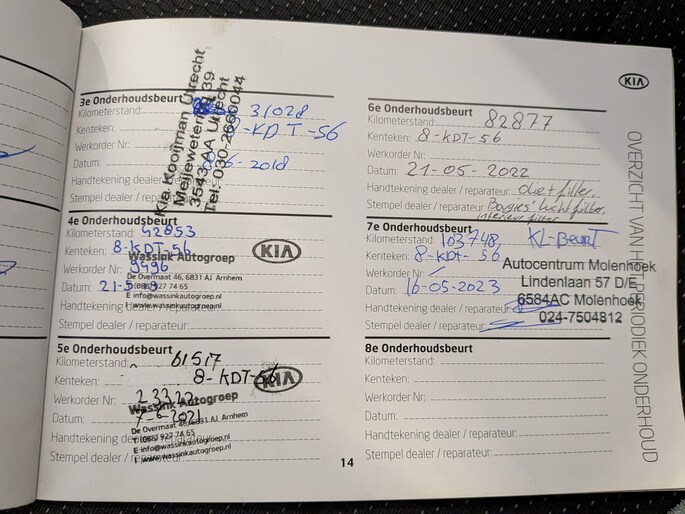 3e Onderhoudsbeurt
Kilometerstand: 31028
Kenteken: 8-KDT-56
Werkorder Nr:
Datum: 8-6-2018
Handtekening dealer
Stempel dealer / rep
Kia Kooijman Utrecht
Meijewetering 39
3543 AA Utrecht
Tel: 030-2660044
4e Onderhoudsbeurt
Kilometerstand: 42853
Kenteken: 8-KDT-56
Werkorder Nr: 9496
Datum: 21-5
Handtekening dealer / reparateur:
Stempel dealer / reparateur:
Wassink Autogroep
KIA
De Overmaat 46, 6831 AJ Arnhem
T (088) 927 74 65
E info@wassinkautogroep.nl
I www.wassinkautogroep.nl
5e Onderhoudsbeurt
Kilometerstand: 61517
Kenteken: 8-KDT-56
Werkorder Nr: 23322
Datum: 7-6-2021
Handtekening dealer / reparateur:
Stempel dealer / reparateur:
Wassink Autogroep
KIA
De Overmaat 46, 6831 AJ Arnhem
T (088) 927 74 65
E info@wassinkautogroep.nl
I www.wassinkautogroep.nl
14
KIA
OVERZICHT VAN HET PERIODIEK ONDERHOUD
6e Onderhoudsbeurt
Kilometerstand: 82877
Kenteken: 8-KDT-56
Werkorder Nr:
Datum: 21-05-2022
Handtekening dealer / reparateur: olie + filter,
Stempel dealer / reparateur: Bougies' luchtfilter,
interieur filter
7e Onderhoudsbeurt
Kilometerstand: 103748, KL-Beurt
Kenteken: 8-KDT-56
Werkorder Nr:
Datum: 16-05-2023
Handtekening dealer / reparateur:
Stempel dealer / reparateur:
Autocentrum Molenhoek
Lindenlaan 57 D/E
6584AC Molenhoek
024-7504812
8e Onderhoudsbeurt
Kilometerstand:
Kenteken:
Werkorder Nr:
Datum:
Handtekening dealer / reparateur:
Stempel dealer / reparateur: